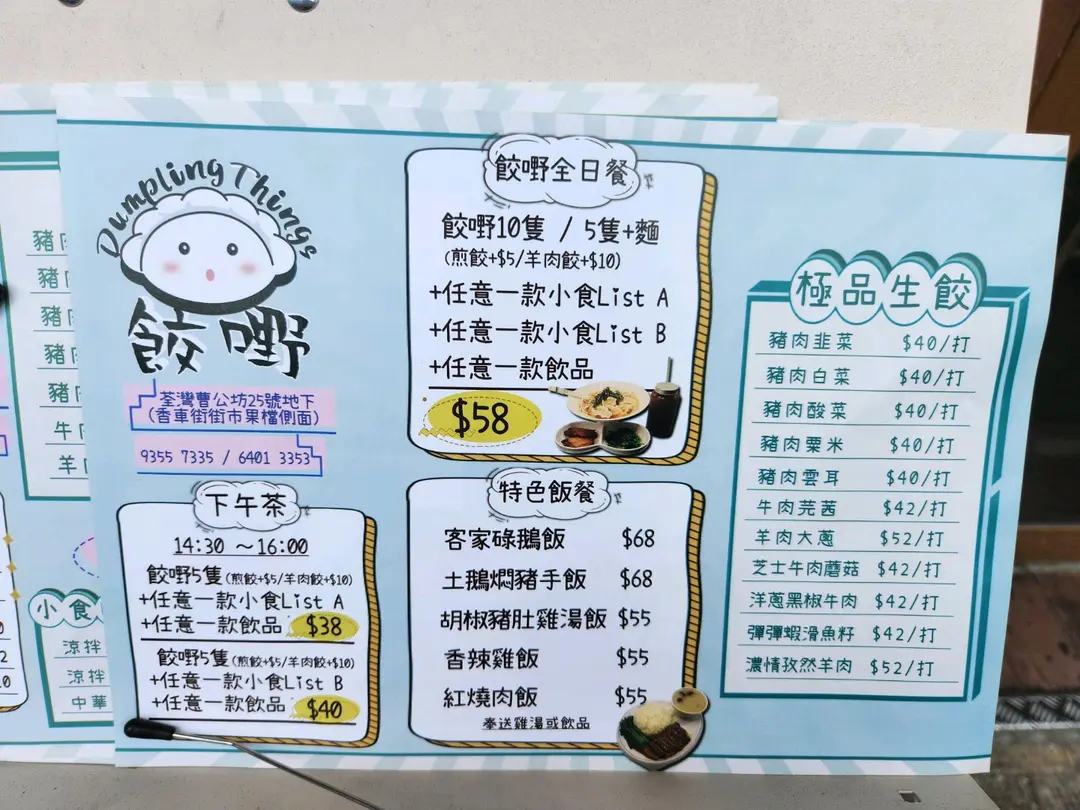 Dumpling Things
餃嘢
荃灣曹公坊25號地下
(香車街街市果檔側面)
9355 7335 / 6401 3353
下午茶
14:30 ～16:00
餃嘢5隻(煎餃+$5/羊肉餃+$10)
+任意一款小食List A
+任意一款飲品 $38
餃嘢5隻(煎餃+$5/羊肉餃+$10)
+任意一款小食List B
+任意一款飲品 $40
餃嘢全日餐
餃嘢10隻 / 5隻+麵
(煎餃+$5/羊肉餃+$10)
+任意一款小食List A
+任意一款小食List B
+任意一款飲品
$58
特色飯餐
客家碌鵝飯 $68
土鵝燜豬手飯 $68
胡椒豬肚雞湯飯 $55
香辣雞飯 $55
紅燒肉飯 $55
麥送雞湯或飲品
極品生餃
豬肉韭菜 $40/打
豬肉白菜 $40/打
豬肉酸菜 $40/打
豬肉粟米 $40/打
豬肉雲耳 $40/打
牛肉芫茜 $42/打
羊肉大蔥 $52/打
芝士牛肉蘑菇 $42/打
洋蔥黑椒牛肉 $42/打
彈彈蝦滑魚籽 $42/打
濃情孜然羊肉 $52/打
豬肉
豬
豬
豬
豬
牛
羊
小食
涼拌
涼拌
中華